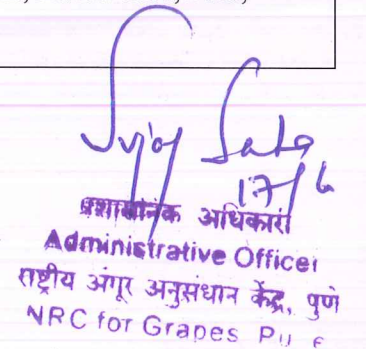 Sujoy Saha
17/6
प्रशासनिक अधिकारी
Administrative Officer
राष्ट्रीय अंगूर अनुसंधान केंद्र, पुणे
NRC for Grapes Pu e